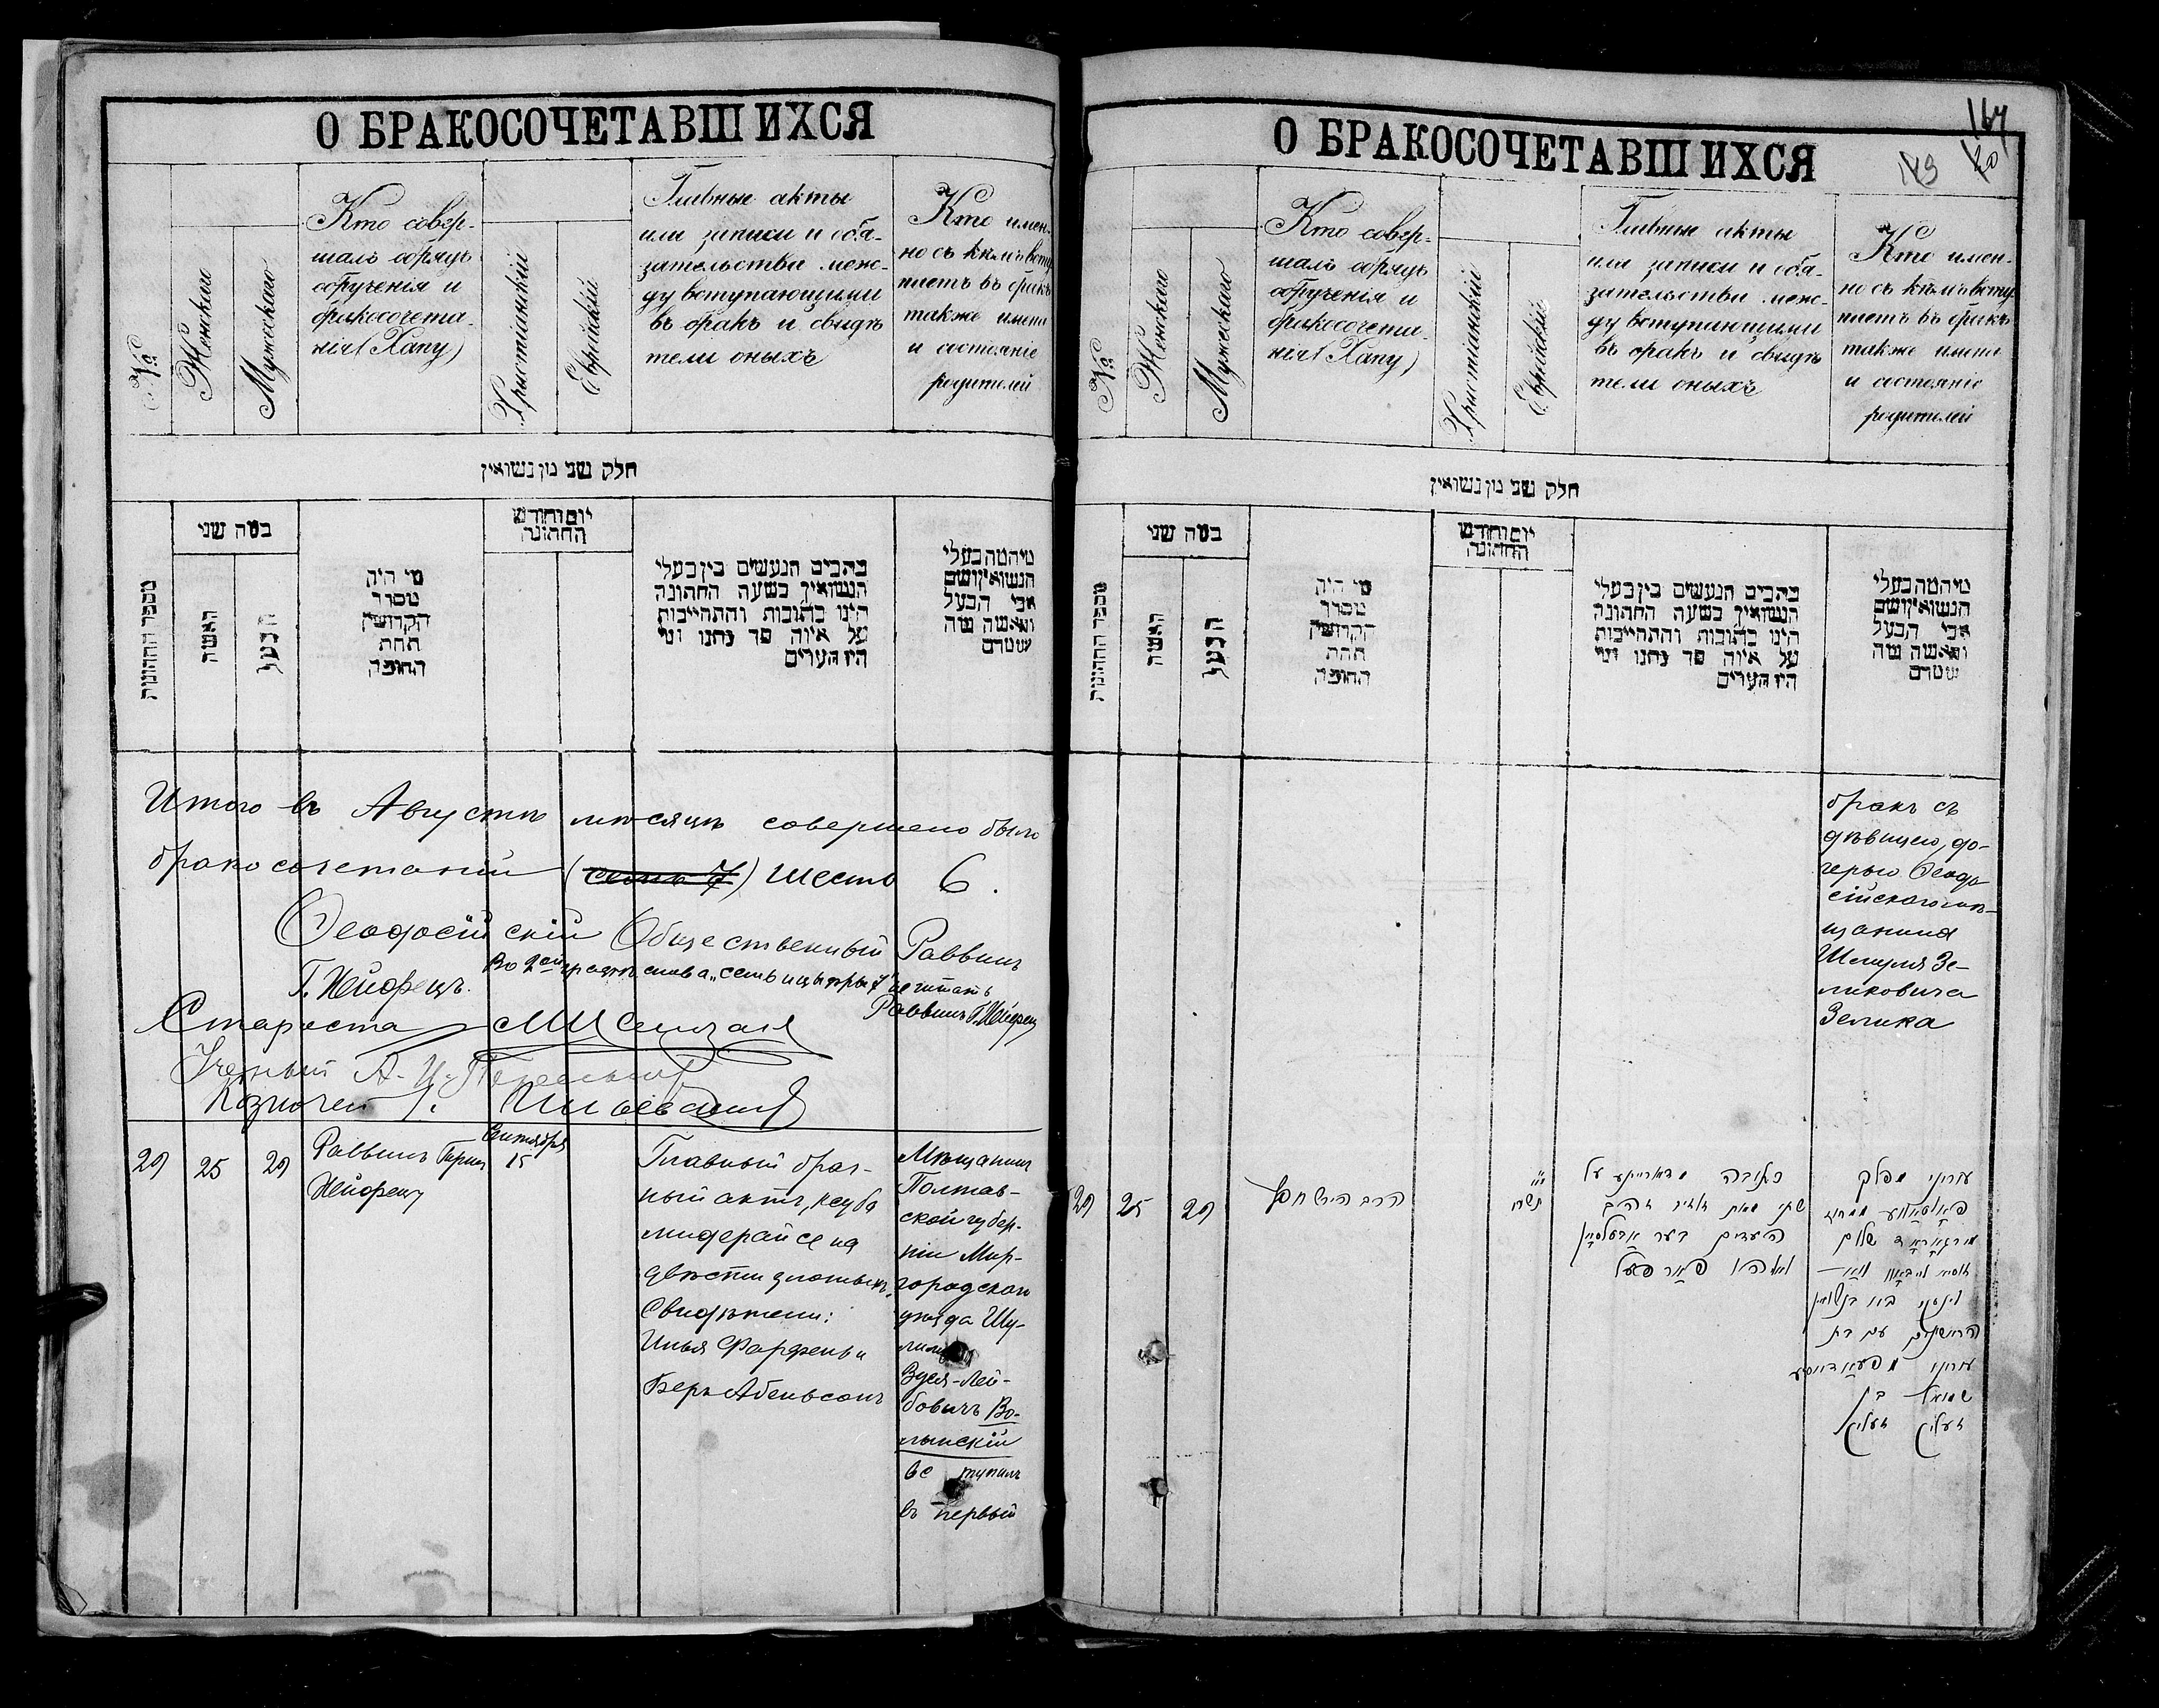 О БРАКОСОЧЕТАВШИХСЯ
№
Женскаго
Мужескаго
Кто совер-
шалъ обрядъ
обрученія и
бракосочета-
нія (Хапу)
Христіанскій
Еврейскій
Главные акты
или записи и обя-
зательства меж-
ду вступающими
въ бракъ и свидѣ
тели оныхъ
Кто имен-
но съ кѣмъ всту
паетъ въ бракъ
также имена
и состояніе
родителей
חלק שני מן נשואין
מספר החתונות
כמה שני
האשה
הבעל
מי היה
מסדר
הקדושין
תחת
החופה
יום וחודש
החתונה
מכתבים הנעשים בין בעלי
הנשואין בשעה החתונה
היינו כתובות והתחייבות
על איזה סך נתנו ומי
היו העדים
מי המה בעלי
הנשואין ושם
אבי הבעל
והאשה מה
שמם
Итого въ Августѣ мѣсяцѣ совершено было
бракосочетаній (семь 7) шесть 6.
Ѳеодосійскій Общественный Раввинъ
Г. Нейфецъ.
Во 2ой графѣ слова „семь и цыфры 7" не читать
Раввинъ Г. Нейфецъ
Староста
Ученый
Казначей
29
25
29
Раввинъ Гирш
Хейфецъ
Сентября
15
Главный брач-
ный актъ, ксуба
мидерайсе на
двѣсти злотыхъ.
Свидѣтели:
Илья Фарфель и
Беръ Абельсонъ
Мѣщанинъ
Полтав-
ской губер-
ніи Мир-
городскаго
уѣзда Шу-
Лей-
бовичъ Во-
лынскій
вступилъ
въ первый
О БРАКОСОЧЕТАВШИХСЯ
167
20
№
Женскаго
Мужескаго
Кто совер-
шалъ обрядъ
обрученія и
бракосочета-
нія (Хапу)
Христіанскій
Еврейскій
Главные акты
или записи и обя-
зательства меж-
ду вступающими
въ бракъ и свидѣ
тели оныхъ
Кто имен-
но съ кѣмъ всту
паетъ въ бракъ
также имена
и состояніе
родителей
חלק שני מן נשואין
מספר החתונות
כמה שני
האשה
הבעל
מי היה
מסדר
הקדושין
תחת
החופה
יום וחודש
החתונה
מכתבים הנעשים בין בעלי
הנשואין בשעה החתונה
היינו כתובות והתחייבות
על איזה סך נתנו ומי
היו העדים
מי המה בעלי
הנשואין ושם
אבי הבעל
והאשה מה
שמם
бракъ съ
дѣвицею, до-
черью Ѳеодо
сійскаго мѣ-
щанина
Шмуля Зе-
ликовича
Зелика
29
25
29
הרב הירש חפץ
תשרי
כתובה מדאורייתא על
שתי מאות
העדים בער אבעלסאן
ואליהו פארפעל
עירוני מפלך
פאלטאווע ממחוז
מירגאראד שלום
בנשואין
הראשונים עם בת
עירוני מפעאדאסיע
שמואל בן
זעליג זעליג